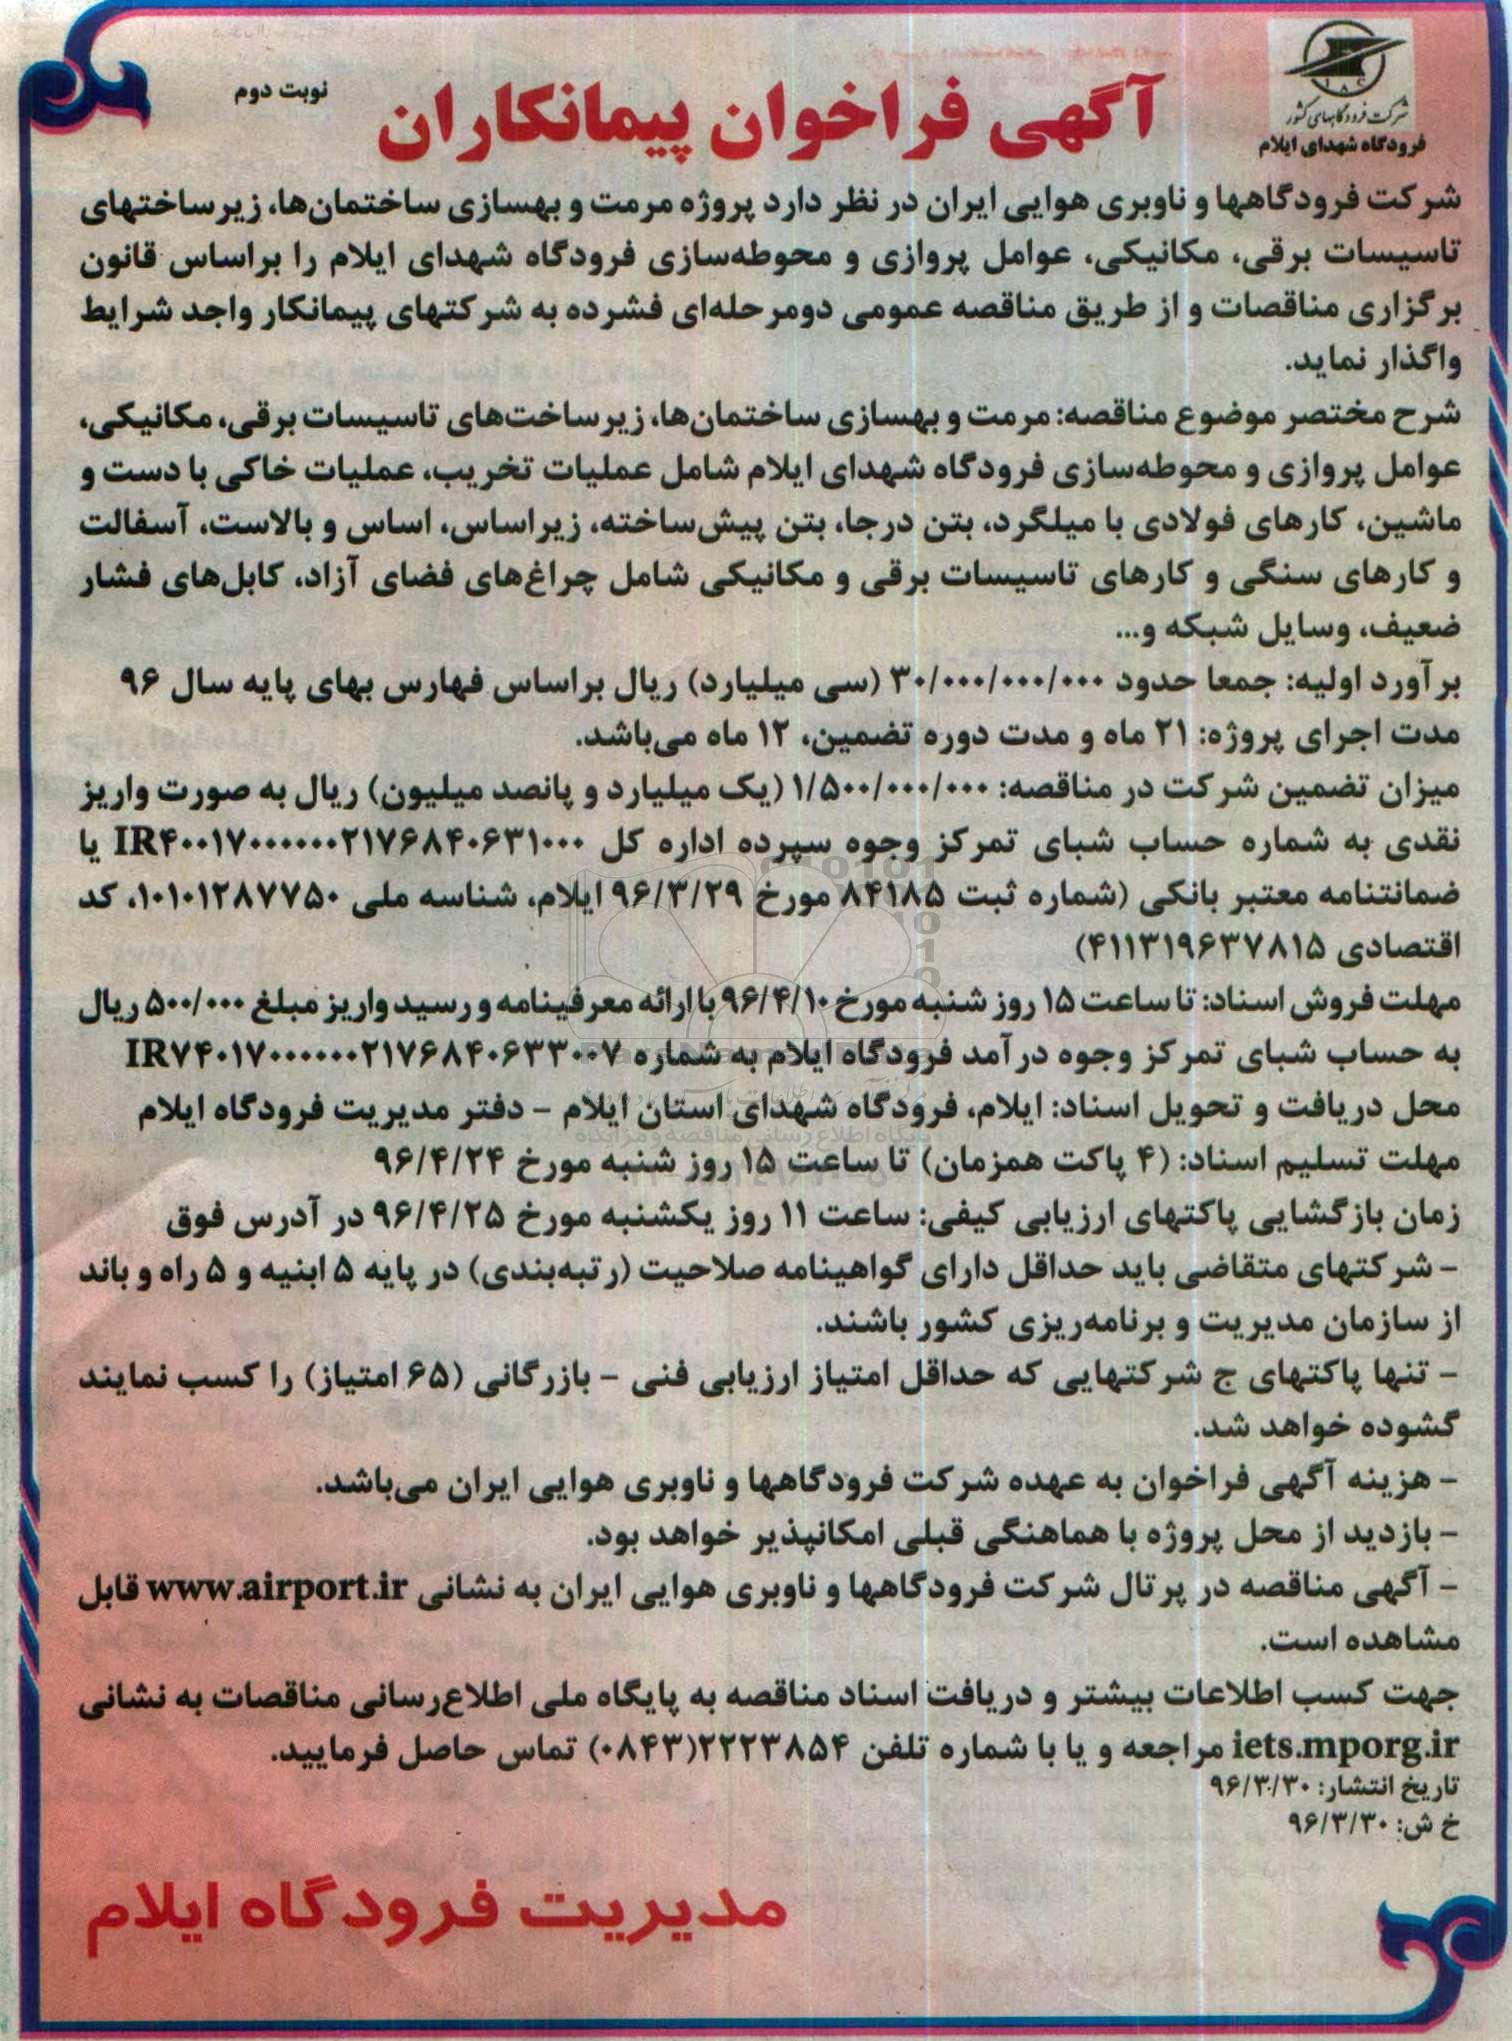 شرکت فرودگاههای کشور
فرودگاه شهدای ایلام
آگهی فراخوان پیمانکاران
نوبت دوم
شرکت فرودگاهها و ناوبری هوایی ایران در نظر دارد پروژه مرمت و بهسازی ساختمان‌ها، زیرساختهای
تاسیسات برقی، مکانیکی، عوامل پروازی و محوطه‌سازی فرودگاه شهدای ایلام را براساس قانون
برگزاری مناقصات و از طریق مناقصه عمومی دومرحله‌ای فشرده به شرکتهای پیمانکار واجد شرایط
واگذار نماید.
شرح مختصر موضوع مناقصه: مرمت و بهسازی ساختمان‌ها، زیرساخت‌های تاسیسات برقی، مکانیکی،
عوامل پروازی و محوطه‌سازی فرودگاه شهدای ایلام شامل عملیات تخریب، عملیات خاکی با دست و
ماشین، کارهای فولادی با میلگرد، بتن درجا، بتن پیش‌ساخته، زیراساس، اساس و بالاست، آسفالت
و کارهای سنگی و کارهای تاسیسات برقی و مکانیکی شامل چراغ‌های فضای آزاد، کابل‌های فشار
ضعیف، وسایل شبکه و...
برآورد اولیه: جمعا حدود ۳۰/۰۰۰/۰۰۰/۰۰۰ (سی میلیارد) ریال براساس فهارس بهای پایه سال ۹۶
مدت اجرای پروژه: ۲۱ ماه و مدت دوره تضمین، ۱۲ ماه می‌باشد.
میزان تضمین شرکت در مناقصه: ۱/۵۰۰/۰۰۰/۰۰۰ (یک میلیارد و پانصد میلیون) ریال به صورت واریز
نقدی به شماره حساب شبای تمرکز وجوه سپرده اداره کل IR۴۰۰۱۷۰۰۰۰۰۰۰۲۱۷۶۸۴۰۶۳۱۰۰۰ یا
ضمانتنامه معتبر بانکی (شماره ثبت ۸۴۱۸۵ مورخ ۹۶/۳/۲۹ ایلام، شناسه ملی ۱۰۱۰۱۲۸۷۷۵۰، کد
اقتصادی ۴۱۱۳۱۹۶۳۷۸۱۵)
مهلت فروش اسناد: تا ساعت ۱۵ روز شنبه مورخ ۹۶/۴/۱۰ با ارائه معرفینامه و رسید واریز مبلغ ۵۰۰/۰۰۰ ریال
به حساب شبای تمرکز وجوه درآمد فرودگاه ایلام به شماره IR۷۴۰۱۷۰۰۰۰۰۰۰۲۱۷۶۸۴۰۶۳۳۰۰۷
محل دریافت و تحویل اسناد: ایلام، فرودگاه شهدای استان ایلام – دفتر مدیریت فرودگاه ایلام
مهلت تسلیم اسناد: (۴ پاکت همزمان) تا ساعت ۱۵ روز شنبه مورخ ۹۶/۴/۲۴
زمان بازگشایی پاکتهای ارزیابی کیفی: ساعت ۱۱ روز یکشنبه مورخ ۹۶/۴/۲۵ در آدرس فوق
– شرکتهای متقاضی باید حداقل دارای گواهینامه صلاحیت (رتبه‌بندی) در پایه ۵ ابنیه و ۵ راه و باند
از سازمان مدیریت و برنامه‌ریزی کشور باشند.
– تنها پاکتهای ج شرکتهایی که حداقل امتیاز ارزیابی فنی – بازرگانی (۶۵ امتیاز) را کسب نمایند
گشوده خواهد شد.
– هزینه آگهی فراخوان به عهده شرکت فرودگاهها و ناوبری هوایی ایران می‌باشد.
– بازدید از محل پروژه با هماهنگی قبلی امکانپذیر خواهد بود.
– آگهی مناقصه در پرتال شرکت فرودگاهها و ناوبری هوایی ایران به نشانی www.airport.ir قابل
مشاهده است.
جهت کسب اطلاعات بیشتر و دریافت اسناد مناقصه به پایگاه ملی اطلاع‌رسانی مناقصات به نشانی
iets.mporg.ir مراجعه و یا با شماره تلفن ۲۲۲۳۸۵۴(۰۸۴۳) تماس حاصل فرمایید.
تاریخ انتشار: ۹۶/۳/۳۰
خ ش: ۹۶/۳/۳۰
مدیریت فرودگاه ایلام